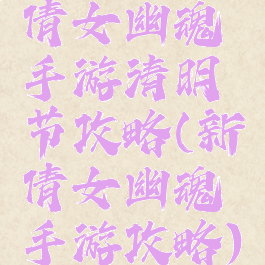 倩女幽魂
手游清明
节攻略(新
倩女幽魂
手游攻略)